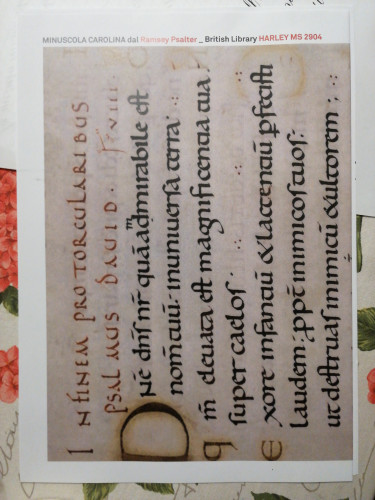 MINUSCOLA CAROLINA dal Ramsey Psalter _ British Library HARLEY MS 2904
IN FINEM PRO TORCULARIBUS
PSALMUS DAVID.
DNĒ dn̄s nr̄ quā admirabile est
nom̄ tuū: in uniuersa terra
qm̄ eleuata est magnificentia tua:
super caelos
Ex ore infantiū & lactentiū ꝑfecisti
laudem: ꝓpt̄ inimicos tuos:
ut destruas inimicū & ultorem